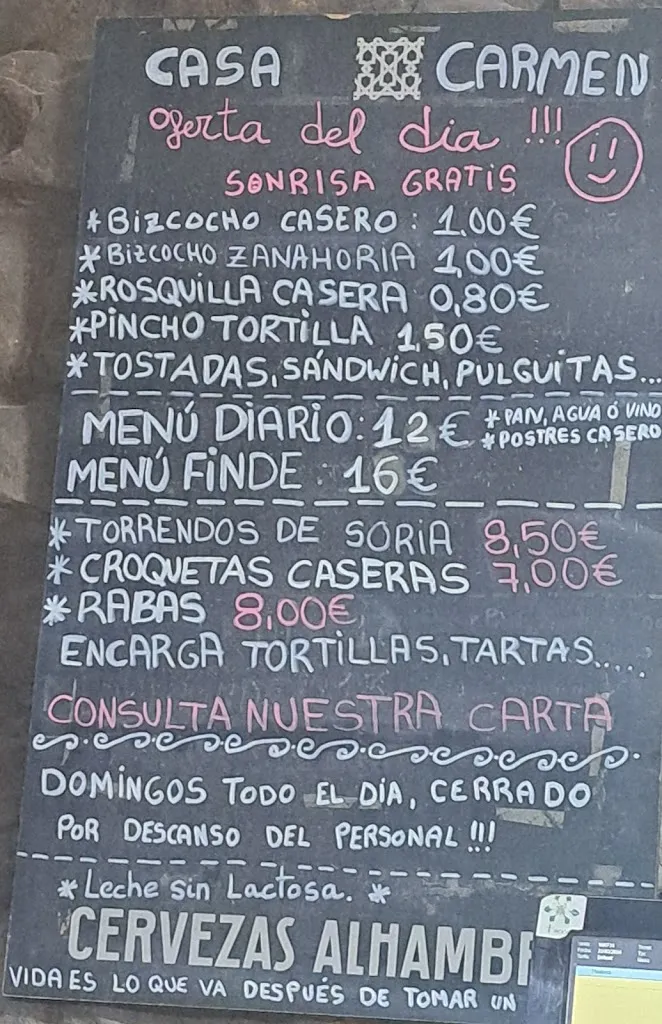 CASA CARMEN
oferta del dia !!!
SONRISA GRATIS
*BIZCOCHO CASERO: 1,00€
*BIZCOCHO ZANAHORIA 1,00€
*ROSQUILLA CASERA 0,80€
*PINCHO TORTILLA 1,50€
*TOSTADAS, SÁNDWICH, PULGUITAS...
MENÚ DIARIO: 12€ *PAN, AGUA Ó VINO
*POSTRES CASERO
MENÚ FINDE. 16€
*TORRENDOS DE SORIA 8,50€
*CROQUETAS CASERAS 7,00€
*RABAS 8,00€
ENCARGA TORTILLAS, TARTAS.....
CONSULTA NUESTRA CARTA
DOMINGOS TODO EL DÍA, CERRADO
POR DESCANSO DEL PERSONAL!!!
*Leche sin Lactosa. *
CERVEZAS ALHAMBR
VIDA ES LO QUE VA DESPUÉS DE TOMAR UN